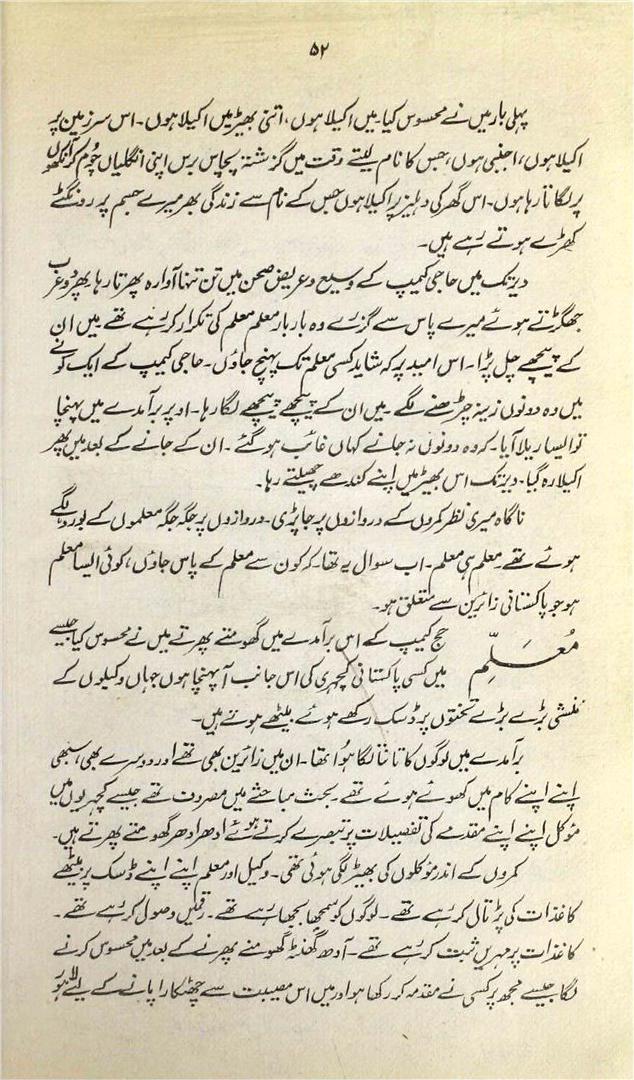 ۵۲
پہلی بار میں نے محسوس کیا۔ میں اکیلا ہوں، اتنی بھیڑ میں اکیلا ہوں۔ اس سرزمین پر
اکیلا ہوں، اجنبی ہوں، جس کا نام لیتے وقت میں گزشتہ پچاس برس اپنی انگلیاں چُوم کر آنکھوں
پر لگاتا رہا ہوں۔ اس گھر کی دہلیز پر اکیلا ہوں جس کے نام سے زندگی بھر میرے جسم پر رونگٹے
کھڑے ہوتے رہے ہیں۔
دیر تک میں حاجی کیمپ کے وسیع و عریض صحن میں تن تنہا آوارہ پھرتا رہا پھر دو عرب
جھگڑتے ہوئے میرے پاس سے گزرے وہ بار بار معلم معلم کی تکرار کر رہے تھے میں ان
کے پیچھے چل پڑا۔ اس امید پر کہ شاید کسی معلم تک پہنچ جاؤں۔ حاجی کیمپ کے ایک کونے
میں وہ دونوں زینہ چڑھنے لگے۔ میں ان کے پیچھے پیچھے لگا رہا۔ اوپر برآمدے میں پہنچا
تو ایسا ریلا آیا۔ کہ وہ دونوں نہ جانے کہاں غائب ہو گئے۔ ان کے جانے کے بعد میں پھر
اکیلا رہ گیا۔ دیر تک اس بھیڑ میں اپنے کندھے چھیلتے رہا۔
ناگاہ میری نظر کمروں کے دروازوں پر جا پڑی۔ دروازوں پر جگہ جگہ معلموں کے بورڈ لگے
ہوئے تھے۔ معلم ہی معلم۔ اب سوال یہ تھا۔ کہ کون سے معلم کے پاس جاؤں، کوئی ایسا معلم
ہو جو پاکستانی زائرین سے متعلق ہو۔
مُعلّم حج کیمپ کے اس برآمدے میں گھومتے پھرتے میں نے محسوس کیا جیسے
میں کسی پاکستانی کچہری کی اس جانب آ پہنچا ہوں جہاں وکیلوں کے
منشی بڑے بڑے تختوں پر ڈسک رکھے ہوئے بیٹھے ہوتے ہیں۔
برآمدے میں لوگوں کا تانتا لگا ہوُا تھا۔ ان میں زائرین بھی تھے اور دوسرے بھی، سبھی
اپنے اپنے کام میں کھوئے ہوئے تھے۔ بحث مباحثے میں مصروف تھے جیسے کچہریوں میں
مؤکل اپنے اپنے مقدمے کی تفصیلات پر تبصرے کرتے ہوئے ادھر ادھر گھومتے پھرتے ہیں۔
کمروں کے اندر مؤکلوں کی بھیڑ لگی ہوئی تھی۔ وکیل اور معلم اپنے اپنے ڈسک پر بیٹھے
کاغذات کی پڑتال کر رہے تھے۔ لوگوں کو سمجھا بجھا رہے تھے۔ رقمیں وصول کر رہے تھے۔
کاغذات پر مہریں ثبت کر رہے تھے۔ آدھ گھنٹہ گھومنے پھرنے کے بعد میں محسوس کرنے
لگا جیسے مجھ پر کسی نے مقدمہ کر رکھا ہو اور میں اس مصیبت سے چھٹکارا پانے کے لیے